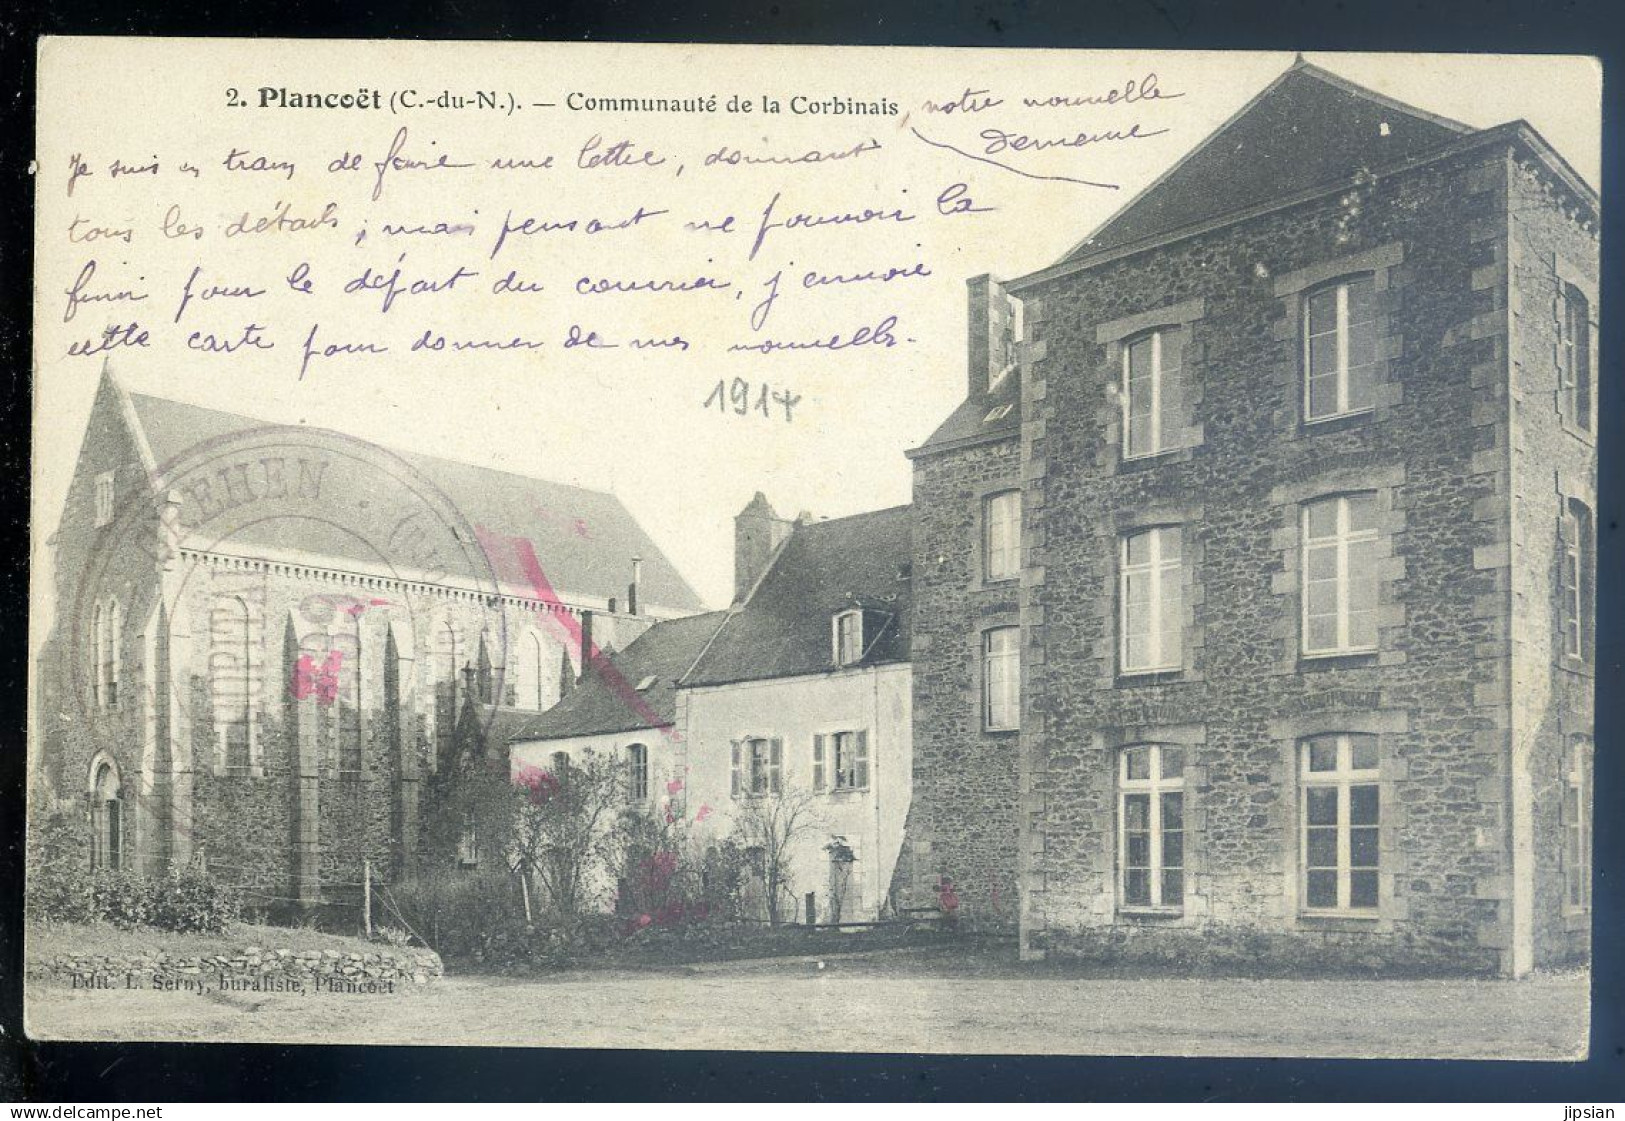 2. Plancoët (C.-du-N.). — Communauté de la Corbinais, notre nouvelle
demeure
Je suis en train de faire une lettre, donnant
tous les détails; mais pensant ne pouvoir la
finir pour le départ du courrier, j'envoie
cette carte pour donner de mes nouvelles.
1914
CREHEN
HOPITAL
Edit. L. Serny, buraliste, Plancoët
Copyright delcampe.net - TVA/VAT: FR11902457836
jipsian